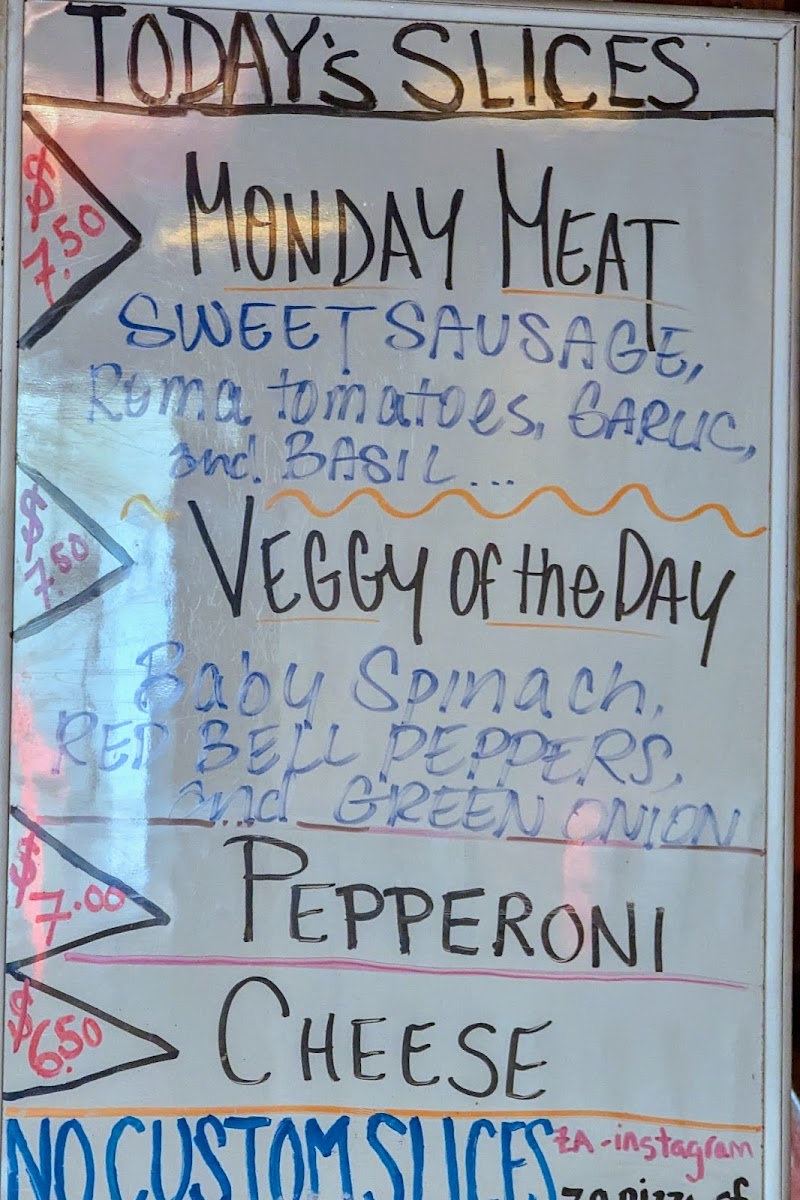 TODAY's SLICES
$7.50
MONDAY MEAT
SWEET SAUSAGE,
Roma tomatoes, GARLIC,
and BASIL...
$7.50
VEGGY Of the DAY
Baby Spinach,
RED BELL PEPPERS,
and GREEN ONION
$7.00
PEPPERONI
$6.50
CHEESE
NO CUSTOM SLICES
ZA-instagram